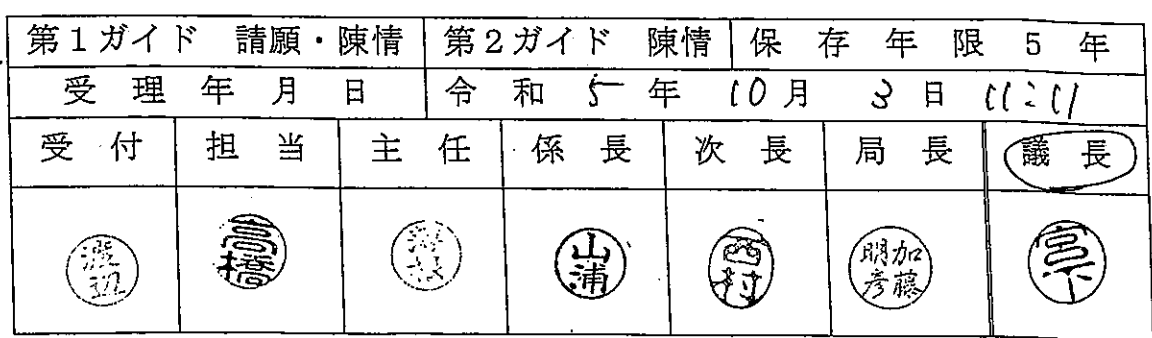 第1ガイド 請願・陳情 第2ガイド 陳情 保存年限5年
受理年月日 令和5年10月3日 11:11
受付 担当 主任 係長 次長 局長 議長
渡辺 高橋 山浦 西村 加藤明彦 宮下